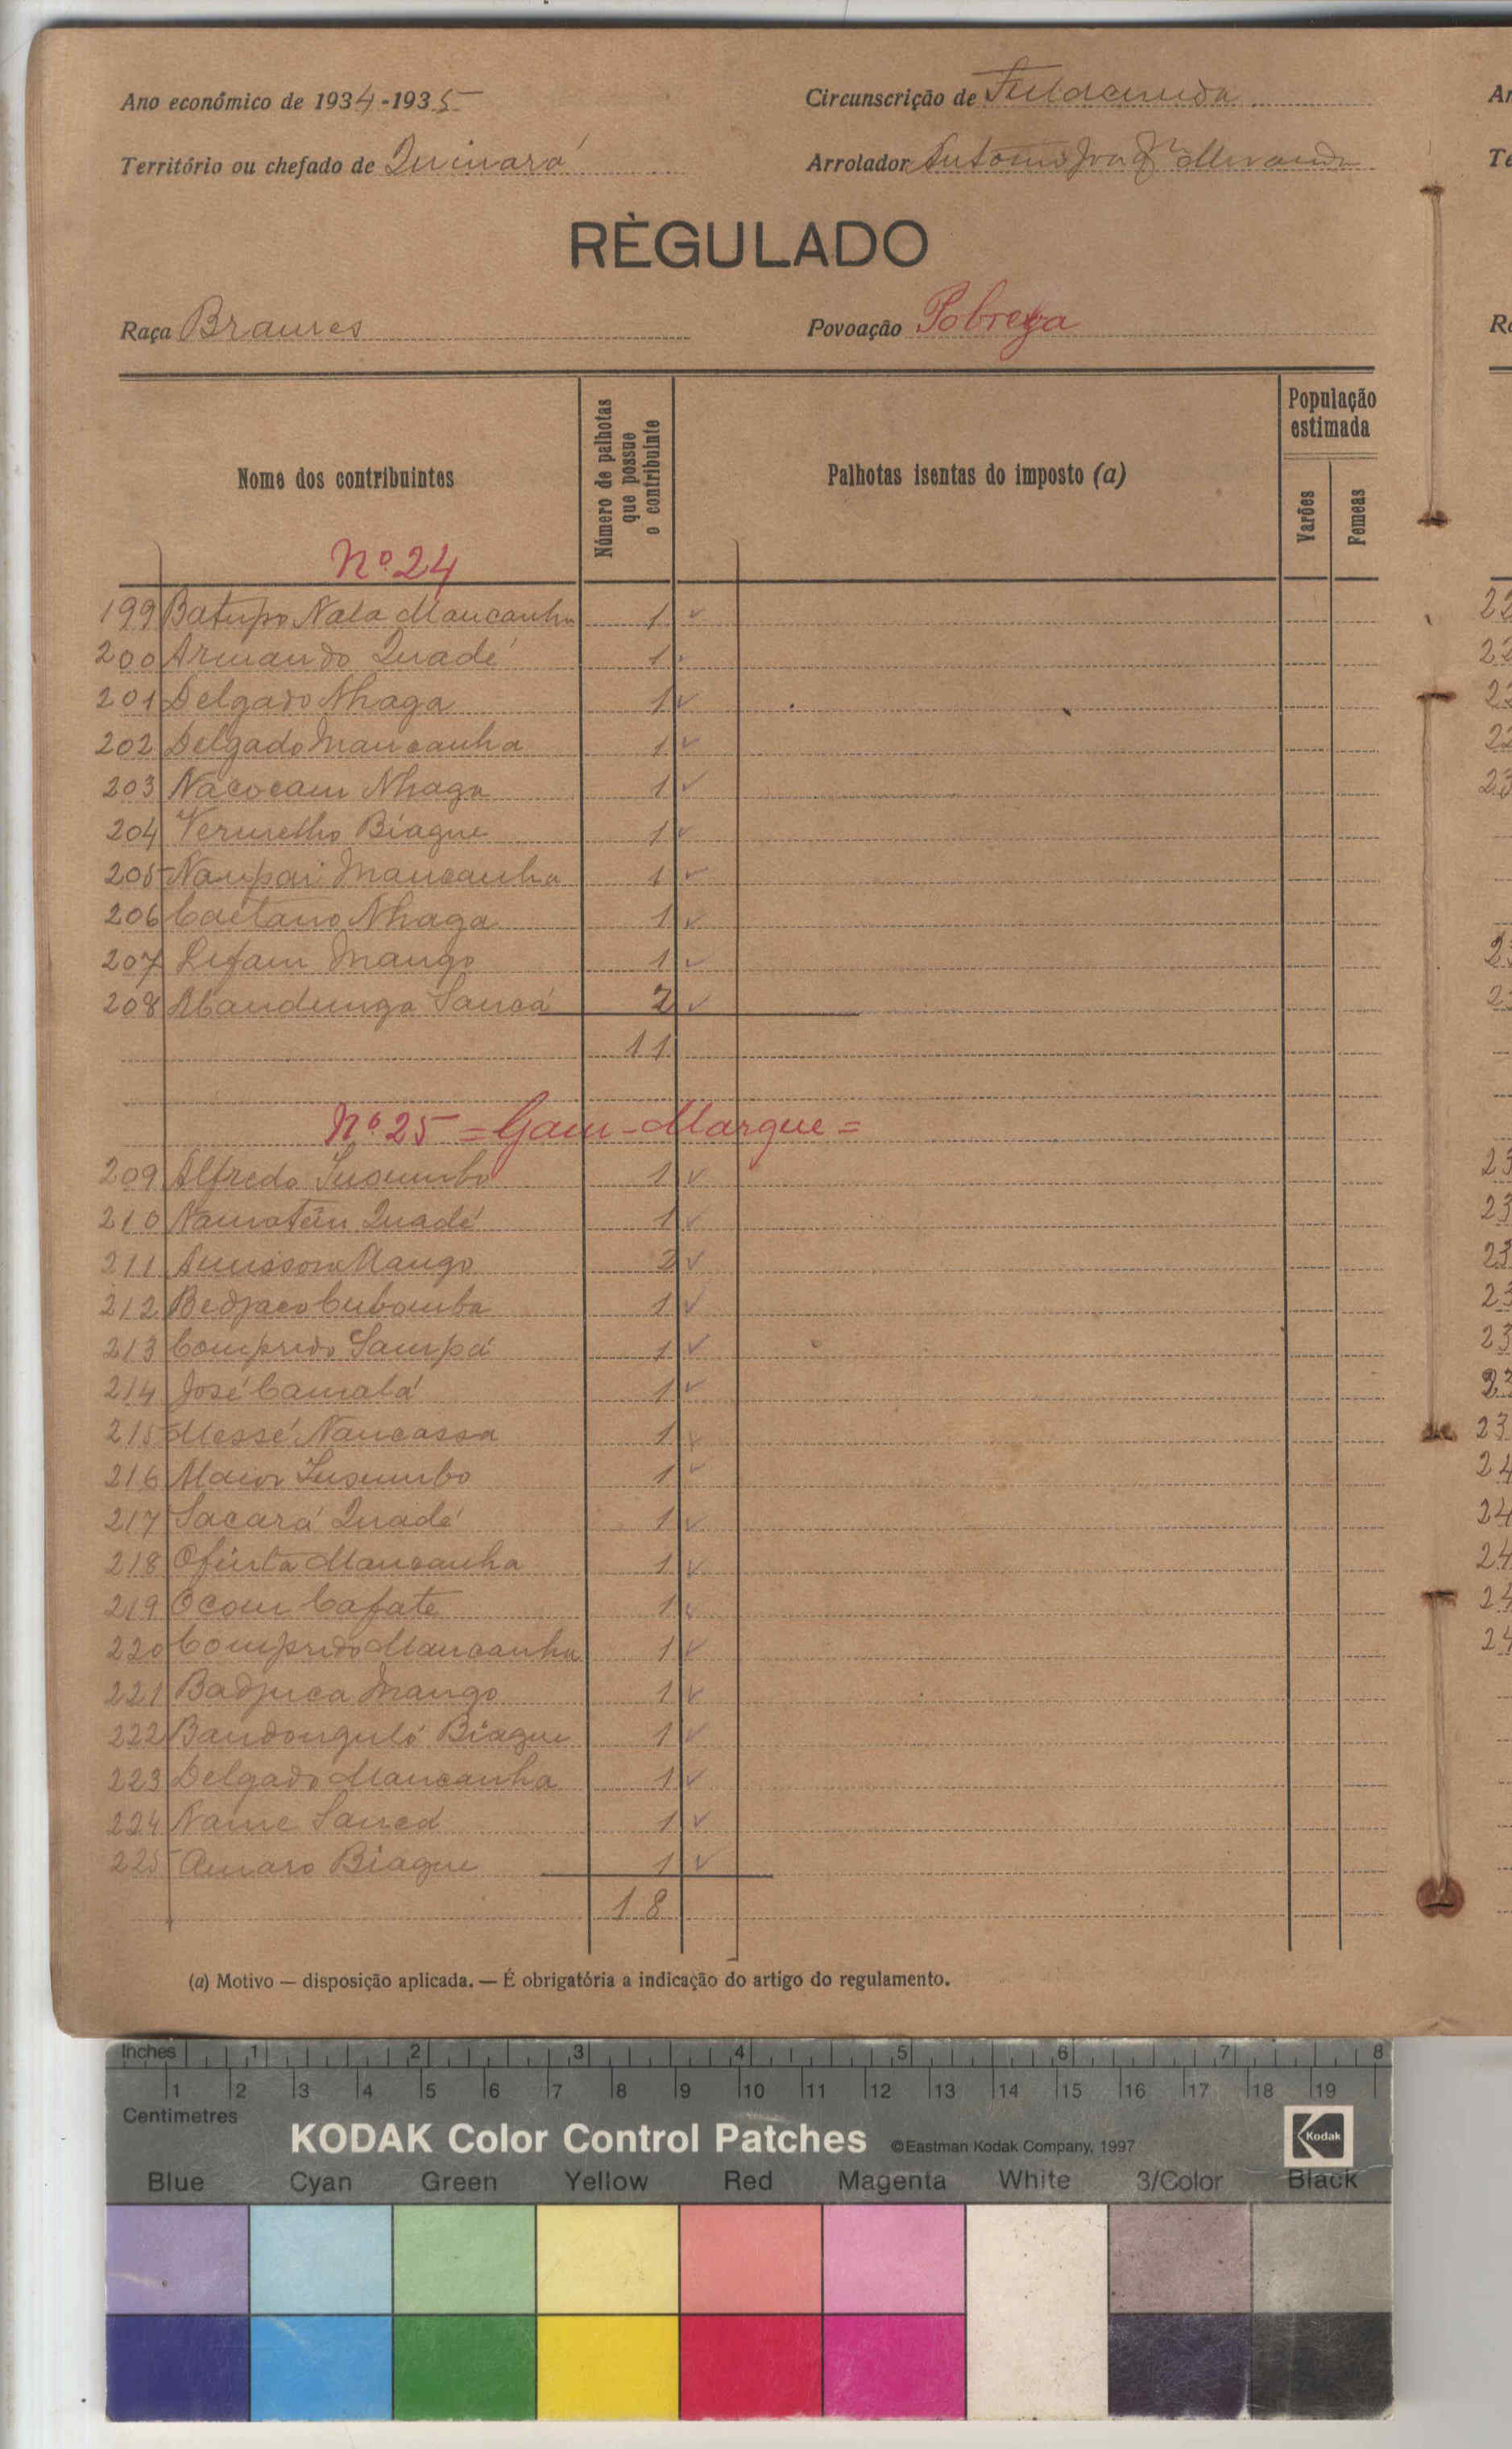 Ano económico de 1934-1935
Circunscrição de Fulacunda
Território ou chefado de Quinará
Arrolador Antonio
RÉGULADO
Raça Brames
Povoação Pobreza
Nome dos contribuintes
Número de palhotas que possue o contribuinte
Palhotas isentas do imposto (a)
População estimada
Varões
Femeas
Nº 24
199 Batupo Nala Mancanha 1 ✓
200 Armando Quadé 1
201 Delgado Nhaga 1 ✓
202 Delgado Mancanha 1 ✓
203 Nacocam Nhaga 1 ✓
204 Vermelho Biague 1 ✓
205 Nampai Mancanha 1 ✓
206 Caetano Nhaga 1 ✓
207 Mango 1 ✓
208 Mandunga Sancá 2 ✓
11
Nº 25 = Gam-Margue =
209 Alfredo 1 ✓
210 Quadé 1 ✓
211 Mango 2 ✓
212 Bedjaco Cubamba 1 ✓
213 Comprido Sampá 1 ✓
214 José Camalá 1 ✓
215 Messé Nancassa 1 ✓
216 Maior 1 ✓
217 Sacará Quadé 1 ✓
218 Mancanha 1 ✓
219 Ocom Cafate 1 ✓
220 Comprido Mancanha 1 ✓
221 Badjuca Mango 1 ✓
222 Bandonguló Biague 1 ✓
223 Delgado Mancanha 1 ✓
224 Name Sancá 1 ✓
225 Amaro Biague 1 ✓
18
(a) Motivo — disposição aplicada. — É obrigatória a indicação do artigo do regulamento.
Inches 1 2 3 4 5 6 7 8
1 2 3 4 5 6 7 8 9 10 11 12 13 14 15 16 17 18 19
Centimetres
KODAK Color Control Patches ©Eastman Kodak Company, 1997 Kodak
Blue Cyan Green Yellow Red Magenta White 3/Color Black